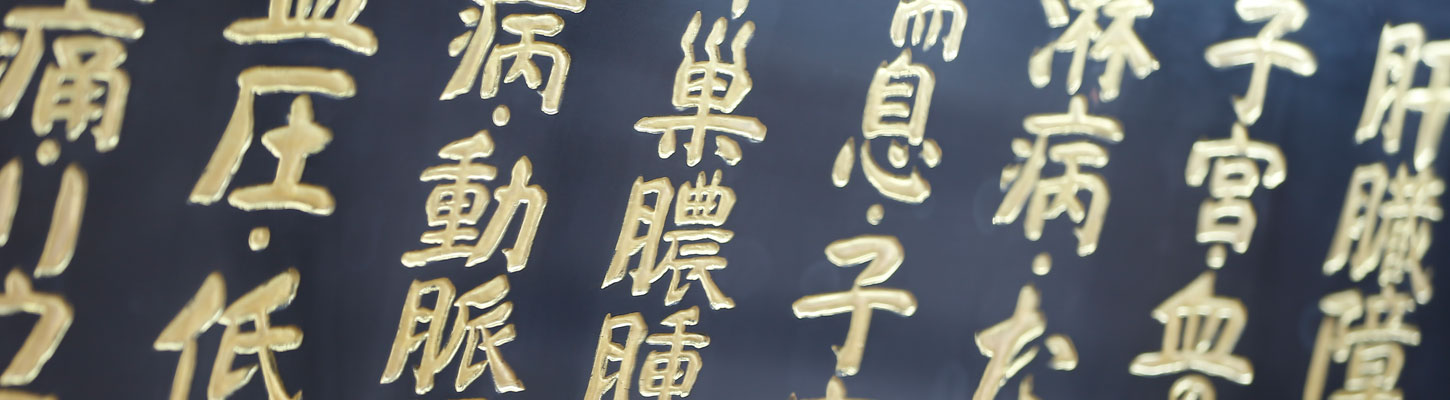 肝臓障
子宮・血
淋病・お
息・子
巣膿腫
病・動脈
血圧・低
痛・リウ